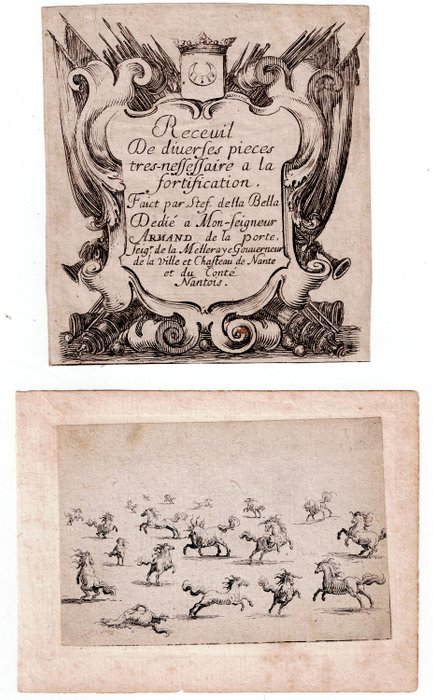 Receuil
De diuerses pieces
tres-nessessaire a la
fortification.
Faict par Stef. della Bella
Dedié a Mon-seigneur
ARMAND de la porte,
Seigr. de la Melleraye Gouuerneur
de la Ville et Chasteau de Nante
et du Conté
Nantois.